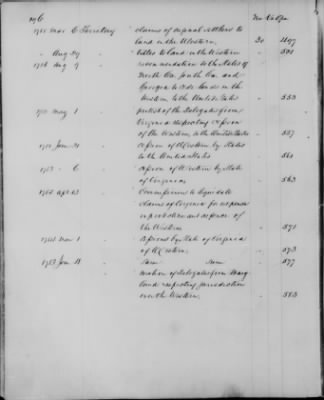 196
No. & Page
Territory claims of
land in the Western, 30
Aug 29 titles to land in the Western
1786 Aug 9 recommendation to the States of
North Ca. South Ca. and
Georgia to cede lands in the
Western to the United States 553
May 1 protest of the Delegates from
Virginia respecting cession
of the Western to the United States 557
Jan 31 cession of Western by States
to the United States 561
6 cession of Western by State
of Virginia, 563
Commissioners to liquidate
claims of Virginia for expenses
in protection and defence of
the Western 571
Nov 1 cessions by State of Virginia
of Western, 573
1783 Jan Same Same 577
motion of Delegates from Mary
land respecting jurisdiction
over the Western, 583